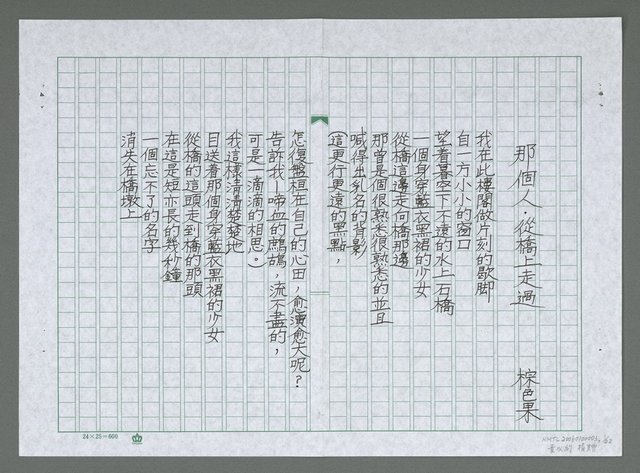 那個人·從橋上走過
棕色果
我在此樓閣做片刻的歇脚
自一方小小的窗口
望着暮空下不遠的水上石橋
一個身穿藍衣黑裙的少女
從橋這邊走向橋那邊
那曾是個很熟悉很熟悉的並且
喊得出乳名的背影
(這更行更遠的黑點，
怎復盤桓在自己的心田，愈演愈大呢？
告訴我—啼血的鷓鴣，流不盡的，
可是一滴滴的相思。)
我這樣清清楚楚地
目送着那個身穿藍衣黑裙的少女
從橋的這頭走到橋的那頭
在這是短亦長的幾秒鐘
一個忘不了的名字
消失在橋墩上
24×25=600